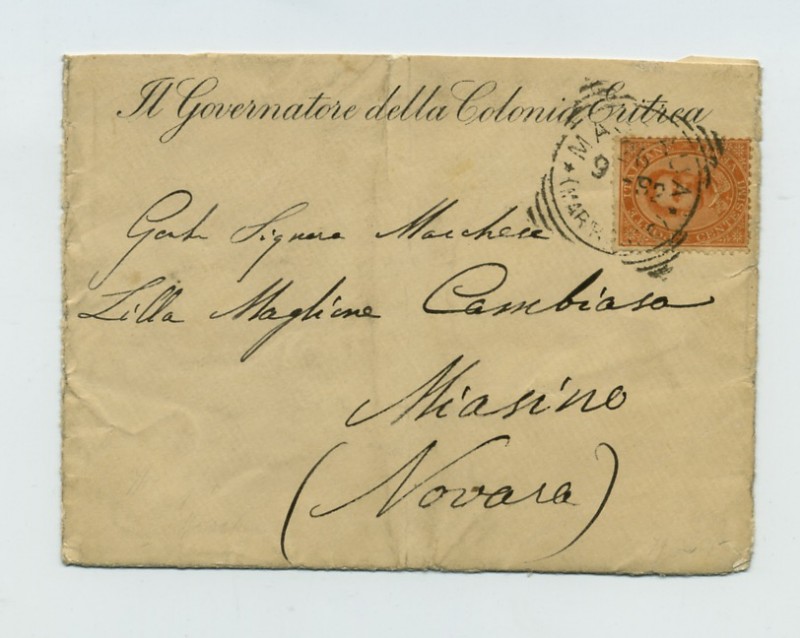 Il Governatore della Colonia Eritrea
Gent. Signora Marchesa
Lilla Maglione Cambiaso
Miasino
(Novara)